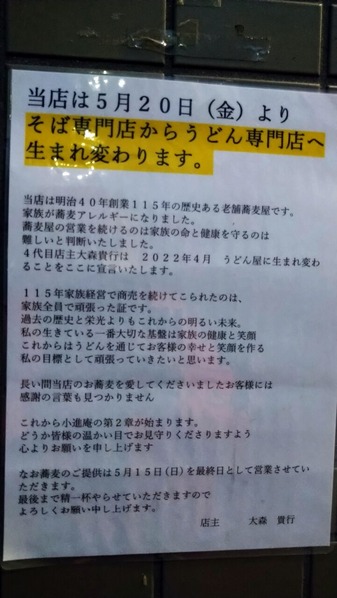 当店は5月20日（金）より
そば専門店からうどん専門店へ
生まれ変わります。
当店は明治40年創業115年の歴史ある老舗蕎麦屋です。
家族が蕎麦アレルギーになりました。
蕎麦屋の営業を続けるのは家族の命と健康を守るのは
難しいと判断いたしました。
4代目店主大森貴行は　2022年4月　うどん屋に生まれ変わ
ることをここに宣言いたします。
115年家族経営で商売を続けてこられたのは、
家族全員で頑張った証です。
過去の歴史と栄光よりもこれからの明るい未来。
私の生きている一番大切な基盤は家族の健康と笑顔
これからはうどんを通じてお客様の幸せと笑顔を作る
私の目標として頑張っていきたいと思います。
長い間当店のお蕎麦を愛してくださいましたお客様には
感謝の言葉も見つかりません
これから小進庵の第2章が始まります。
どうか皆様の温かい目でお見守りくださりますよう
心よりお願いを申し上げます
なお蕎麦のご提供は5月15日(日)を最終日として営業させてい
ただきます。
最後まで精一杯やらせていただきますので
よろしくお願い申し上げます。
店主　大森　貴行